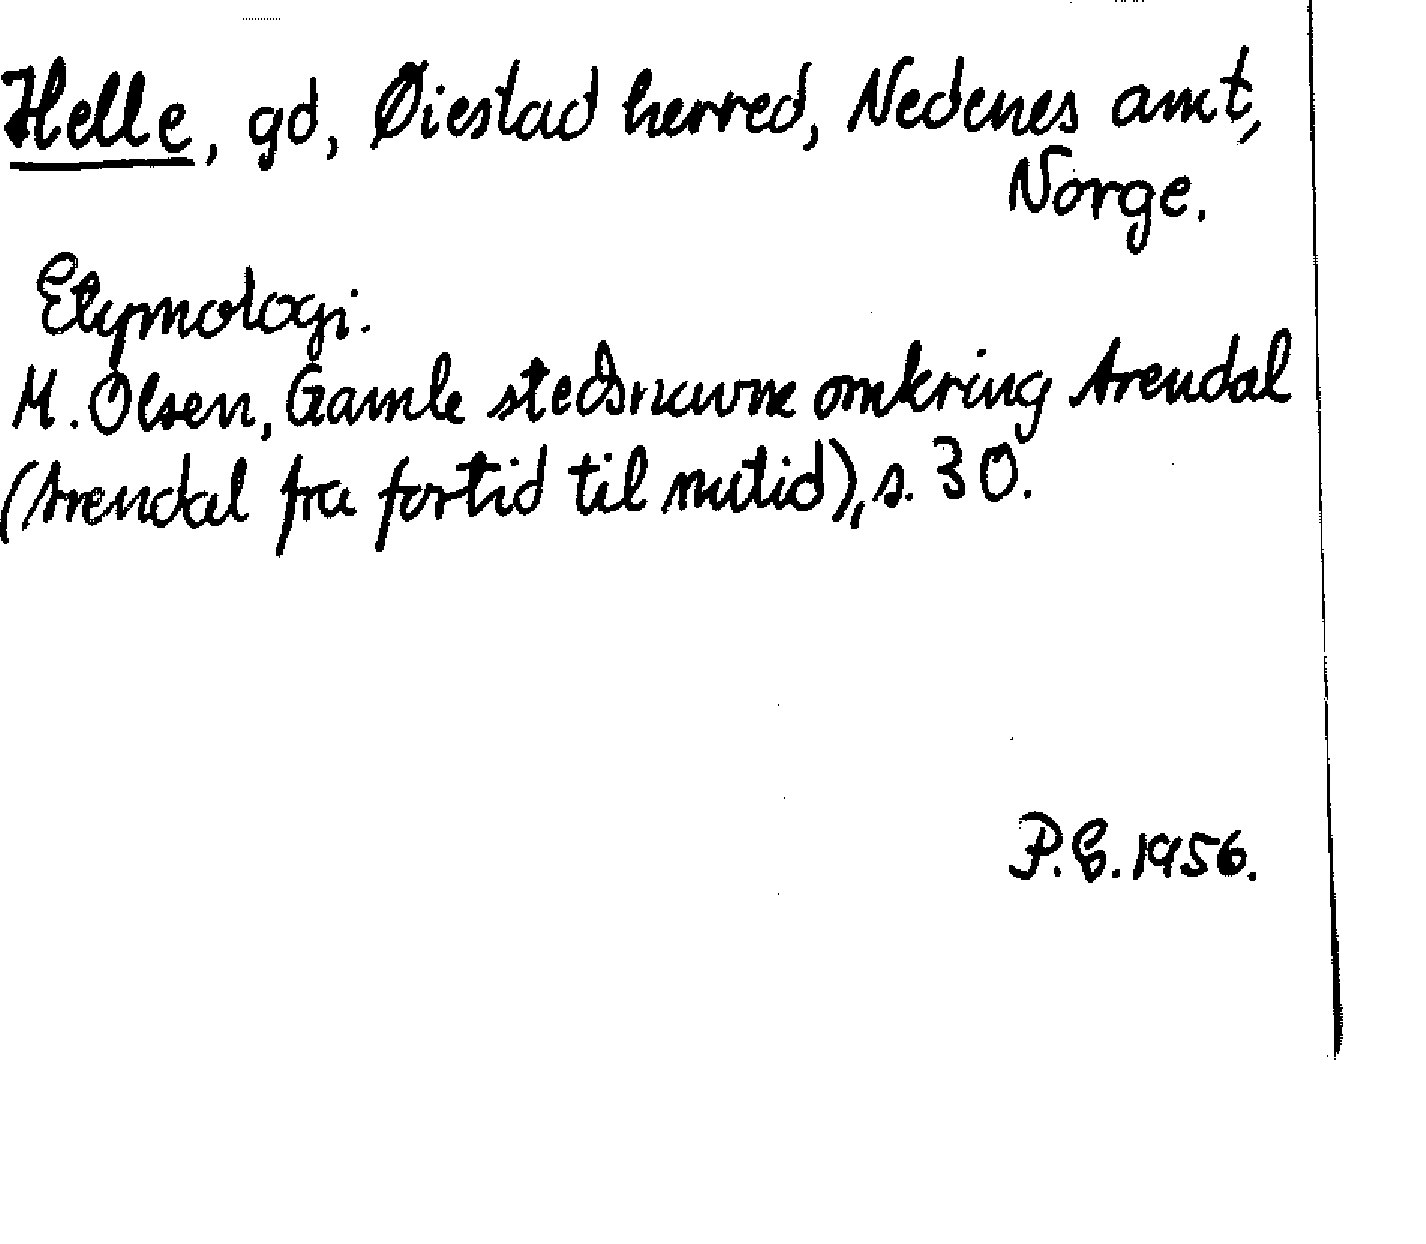 Helle, gd, Øiestad herred, Nedenes amt,
Norge.
Etymologi.
M. Olsen, Gamle stedsnavne omkring Arendal
(Arendal fra fortid til nutid), s. 30.
P.E. 1956.